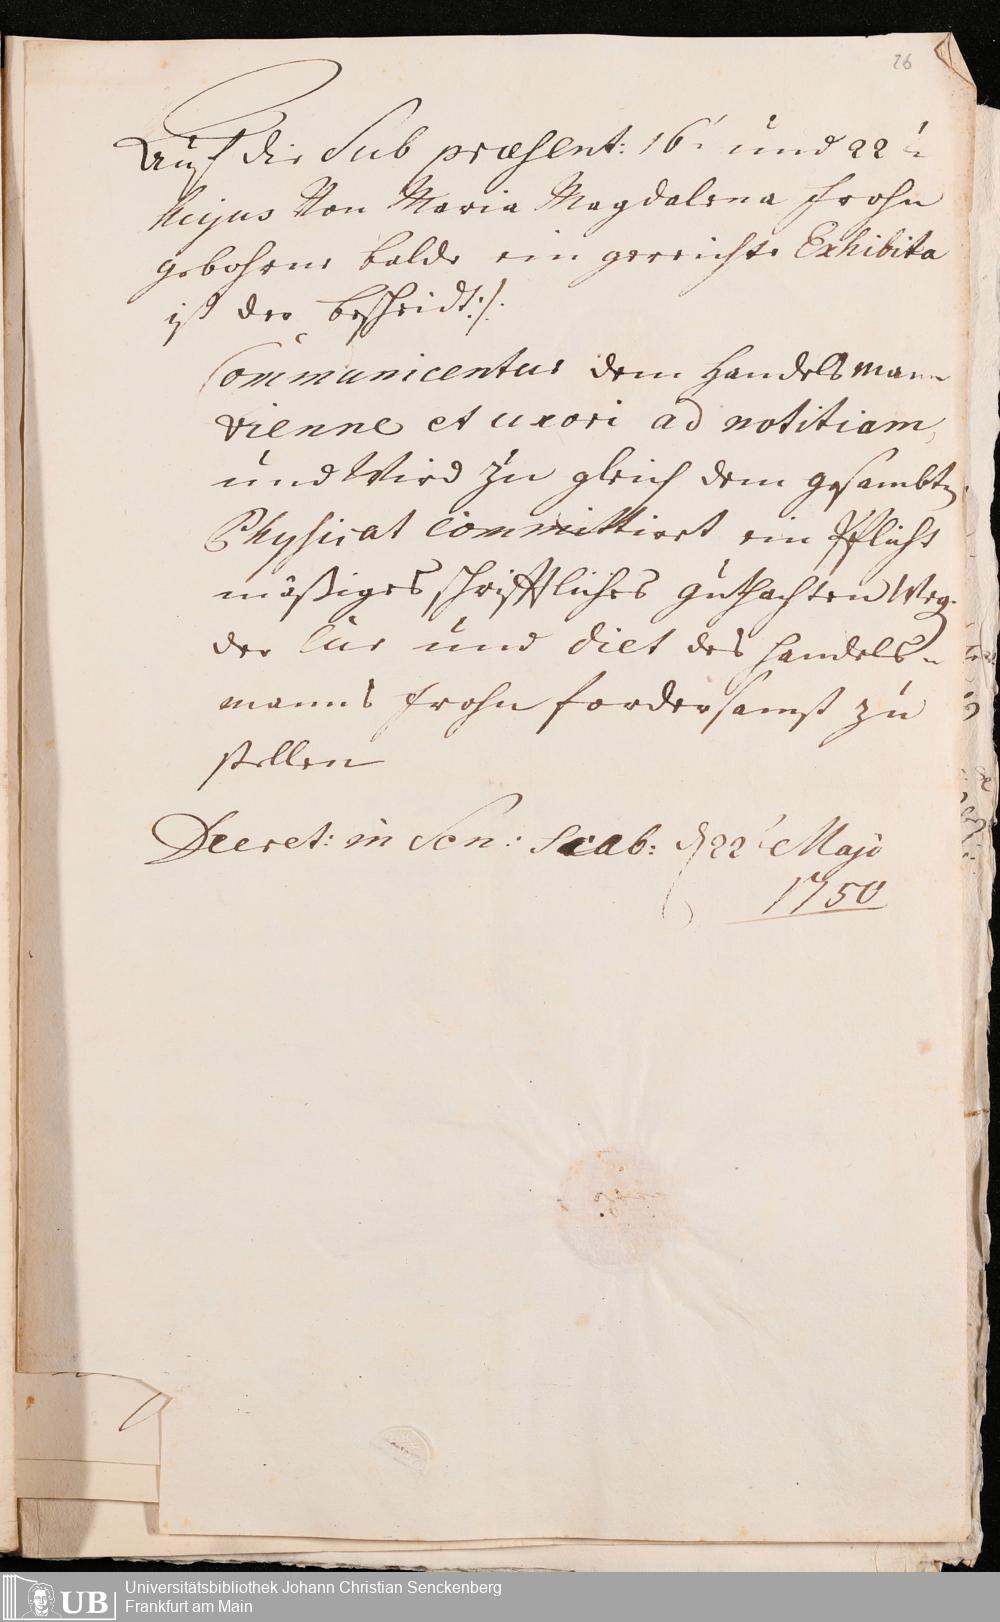 26
Auf die Sub præsent: 16.t und 22.t
hujus Von Maria Magdalena Frohn
gebohrne balde ein gereichte Exhibita
ist der bescheidt:/.
Communicentur dem Handels Mann
Vienne et uxori ad notitiam,
und Wird zu gleich dem gesambten
Physicat Committirt ein Pflicht
mäßiges schrifftliches guthachten Weg.
der Cur und Diet des Handels-
manns Frohn fordersamst zu
stellen
Decret: in Sen: Scab: d 22t Maji
1750
UB
Universitätsbibliothek Johann Christian Senckenberg
Frankfurt am Main